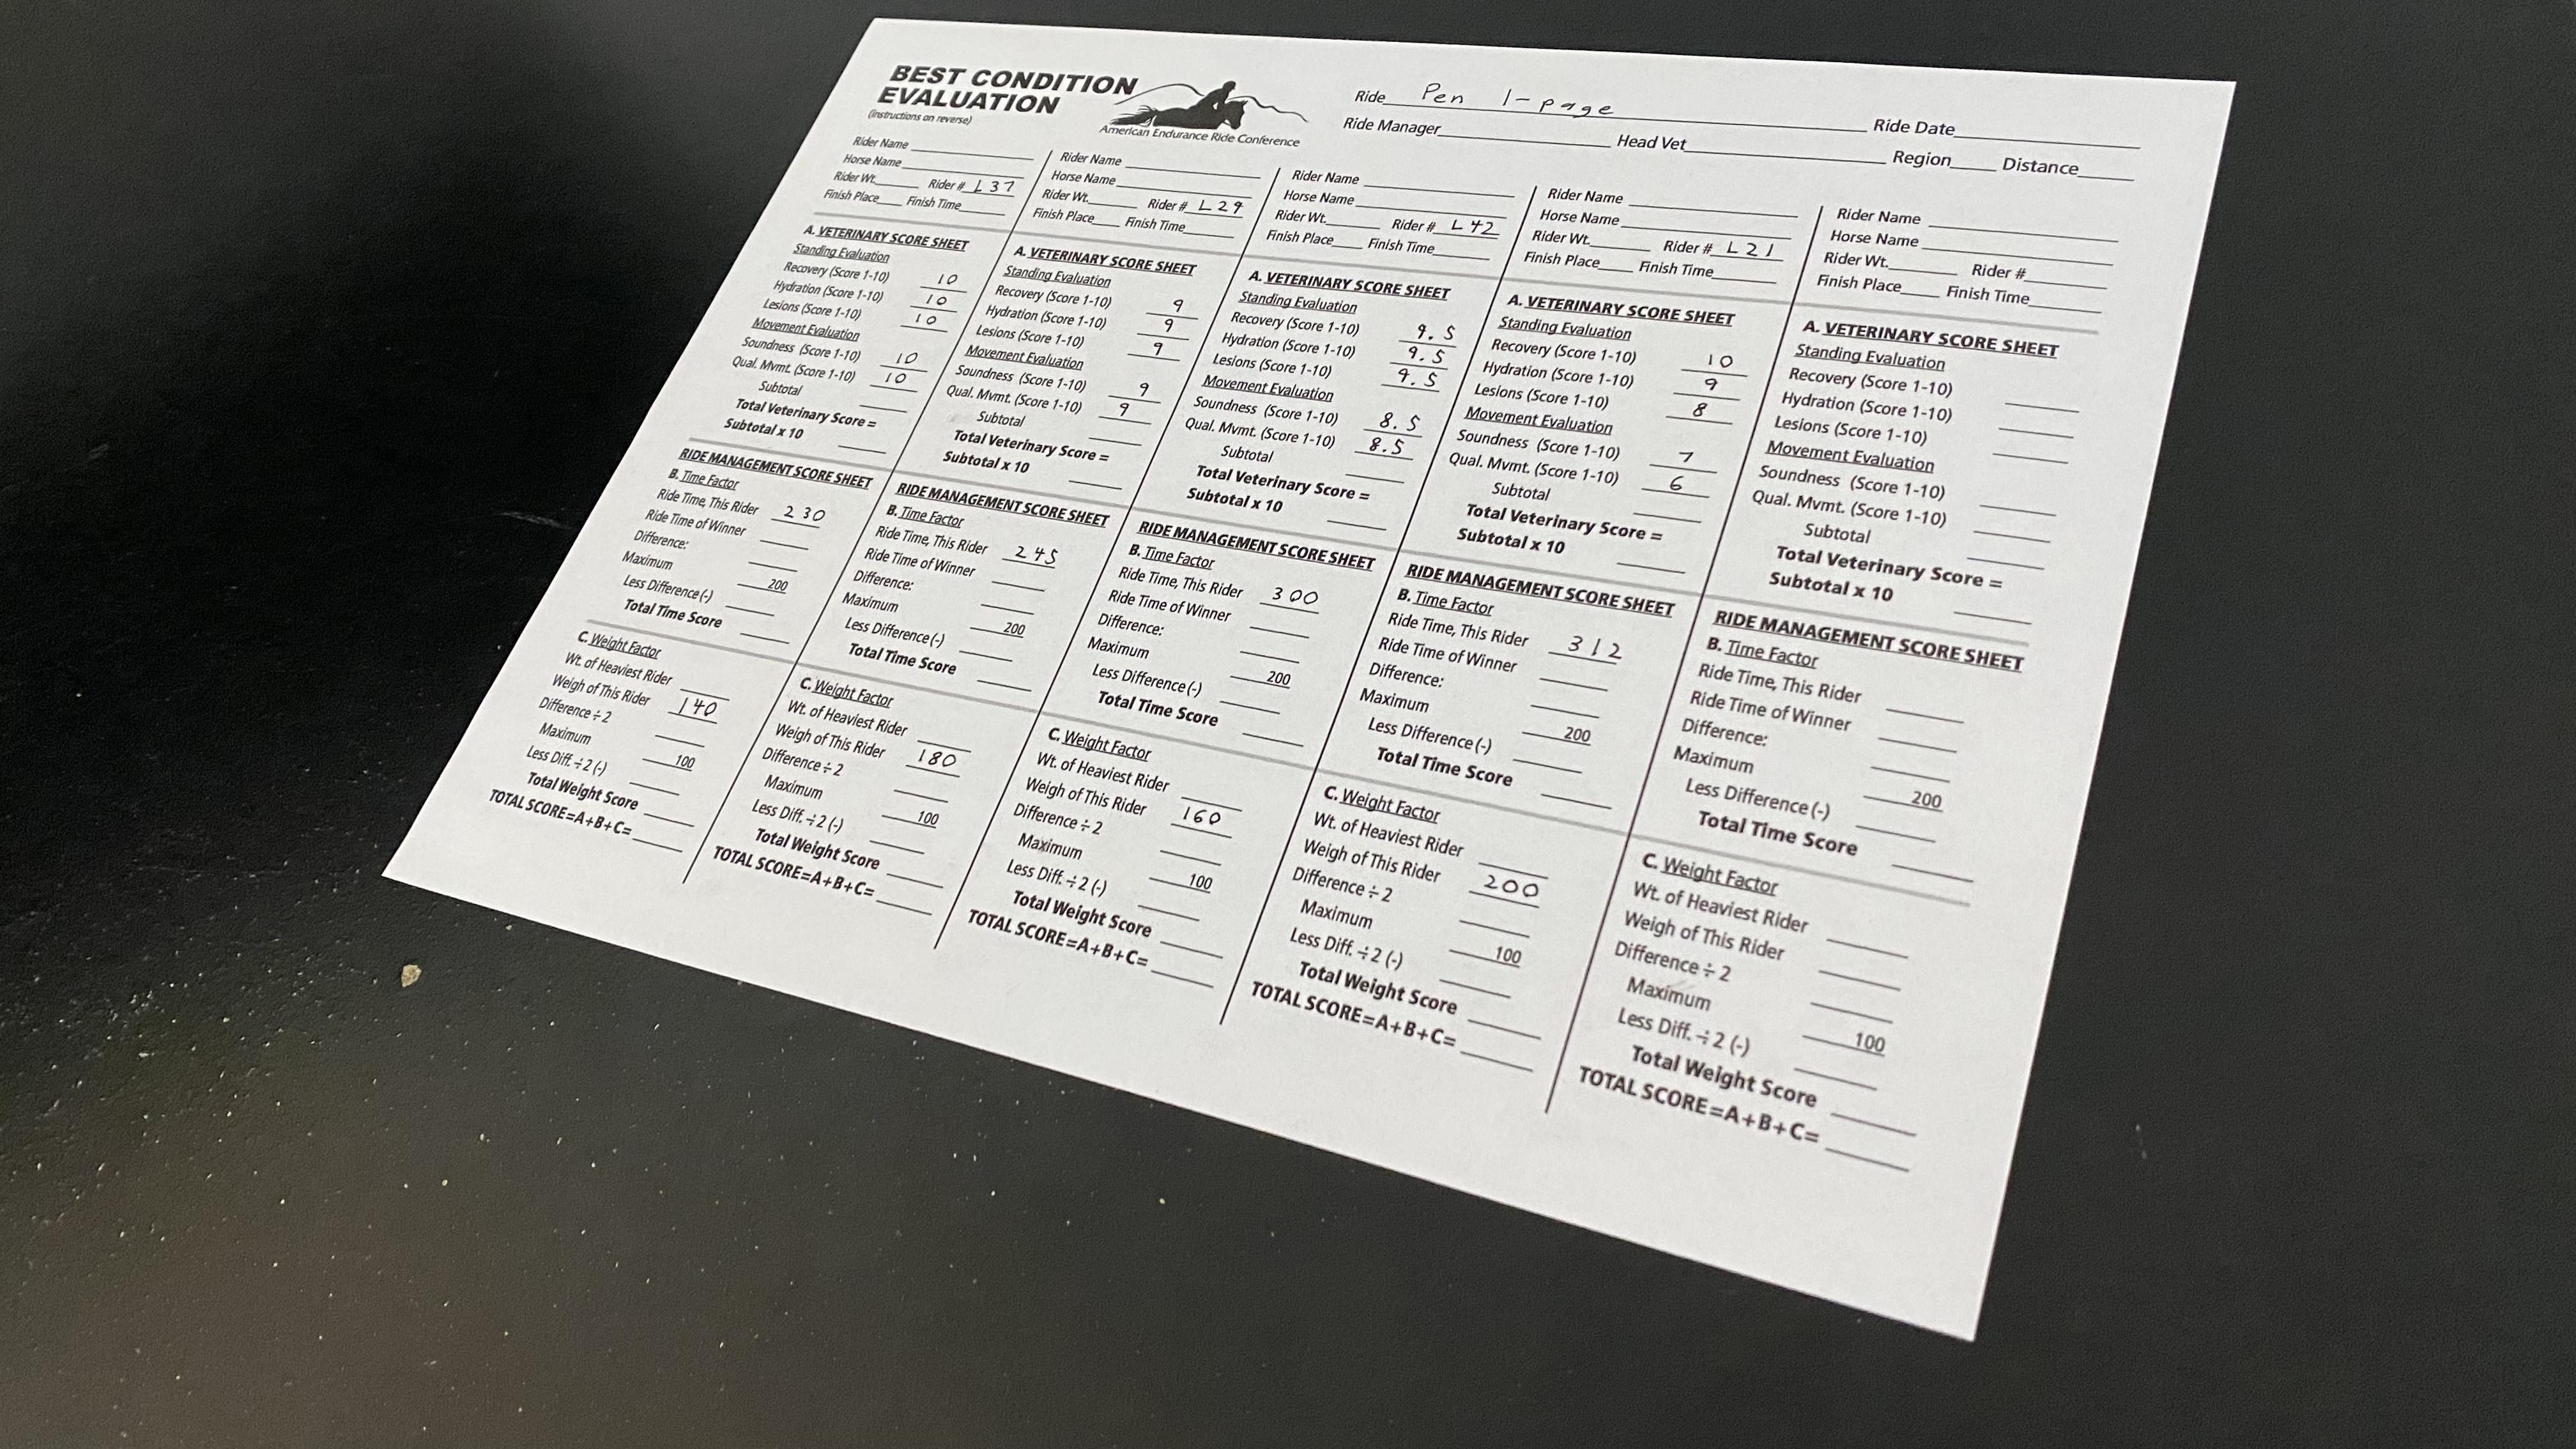 BEST CONDITION
EVALUATION
(instructions on reverse)
American Endurance Ride Conference
Ride Pen 1-page Ride Date
Ride Manager Head Vet Region Distance
Rider Name
Horse Name
Rider Wt. Rider # L37
Finish Place Finish Time
A. VETERINARY SCORE SHEET
Standing Evaluation
Recovery (Score 1-10) 10
Hydration (Score 1-10) 10
Lesions (Score 1-10) 10
Movement Evaluation
Soundness (Score 1-10) 10
Qual. Mvmt. (Score 1-10) 10
Subtotal
Total Veterinary Score =
Subtotal x 10
RIDE MANAGEMENT SCORE SHEET
B. Time Factor
Ride Time, This Rider 230
Ride Time of Winner
Difference:
Maximum 200
Less Difference (-)
Total Time Score
C. Weight Factor
Wt. of Heaviest Rider
Weigh of This Rider 140
Difference ÷ 2
Maximum 100
Less Diff. ÷ 2 (-)
Total Weight Score
TOTAL SCORE=A+B+C=
Rider Name
Horse Name
Rider Wt. Rider # L29
Finish Place Finish Time
A. VETERINARY SCORE SHEET
Standing Evaluation
Recovery (Score 1-10) 9
Hydration (Score 1-10) 9
Lesions (Score 1-10) 9
Movement Evaluation
Soundness (Score 1-10) 9
Qual. Mvmt. (Score 1-10) 9
Subtotal
Total Veterinary Score =
Subtotal x 10
RIDE MANAGEMENT SCORE SHEET
B. Time Factor
Ride Time, This Rider 245
Ride Time of Winner
Difference:
Maximum 200
Less Difference (-)
Total Time Score
C. Weight Factor
Wt. of Heaviest Rider
Weigh of This Rider 180
Difference ÷ 2
Maximum 100
Less Diff. ÷ 2 (-)
Total Weight Score
TOTAL SCORE=A+B+C=
Rider Name
Horse Name
Rider Wt. Rider # L42
Finish Place Finish Time
A. VETERINARY SCORE SHEET
Standing Evaluation
Recovery (Score 1-10) 9.5
Hydration (Score 1-10) 9.5
Lesions (Score 1-10) 9.5
Movement Evaluation
Soundness (Score 1-10) 8.5
Qual. Mvmt. (Score 1-10) 8.5
Subtotal
Total Veterinary Score =
Subtotal x 10
RIDE MANAGEMENT SCORE SHEET
B. Time Factor
Ride Time, This Rider 300
Ride Time of Winner
Difference:
Maximum 200
Less Difference (-)
Total Time Score
C. Weight Factor
Wt. of Heaviest Rider
Weigh of This Rider 160
Difference ÷ 2
Maximum 100
Less Diff. ÷ 2 (-)
Total Weight Score
TOTAL SCORE=A+B+C=
Rider Name
Horse Name
Rider Wt. Rider # L21
Finish Place Finish Time
A. VETERINARY SCORE SHEET
Standing Evaluation
Recovery (Score 1-10) 10
Hydration (Score 1-10) 9
Lesions (Score 1-10) 8
Movement Evaluation
Soundness (Score 1-10) 7
Qual. Mvmt. (Score 1-10) 6
Subtotal
Total Veterinary Score =
Subtotal x 10
RIDE MANAGEMENT SCORE SHEET
B. Time Factor
Ride Time, This Rider 312
Ride Time of Winner
Difference:
Maximum 200
Less Difference (-)
Total Time Score
C. Weight Factor
Wt. of Heaviest Rider
Weigh of This Rider 200
Difference ÷ 2
Maximum 100
Less Diff. ÷ 2 (-)
Total Weight Score
TOTAL SCORE=A+B+C=
Rider Name
Horse Name
Rider Wt. Rider #
Finish Place Finish Time
A. VETERINARY SCORE SHEET
Standing Evaluation
Recovery (Score 1-10)
Hydration (Score 1-10)
Lesions (Score 1-10)
Movement Evaluation
Soundness (Score 1-10)
Qual. Mvmt. (Score 1-10)
Subtotal
Total Veterinary Score =
Subtotal x 10
RIDE MANAGEMENT SCORE SHEET
B. Time Factor
Ride Time, This Rider
Ride Time of Winner
Difference:
Maximum 200
Less Difference (-)
Total Time Score
C. Weight Factor
Wt. of Heaviest Rider
Weigh of This Rider
Difference ÷ 2
Maximum 100
Less Diff. ÷ 2 (-)
Total Weight Score
TOTAL SCORE=A+B+C=